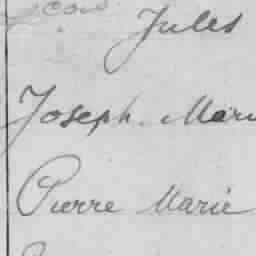 Jules
Joseph. Mari
Pierre Marie